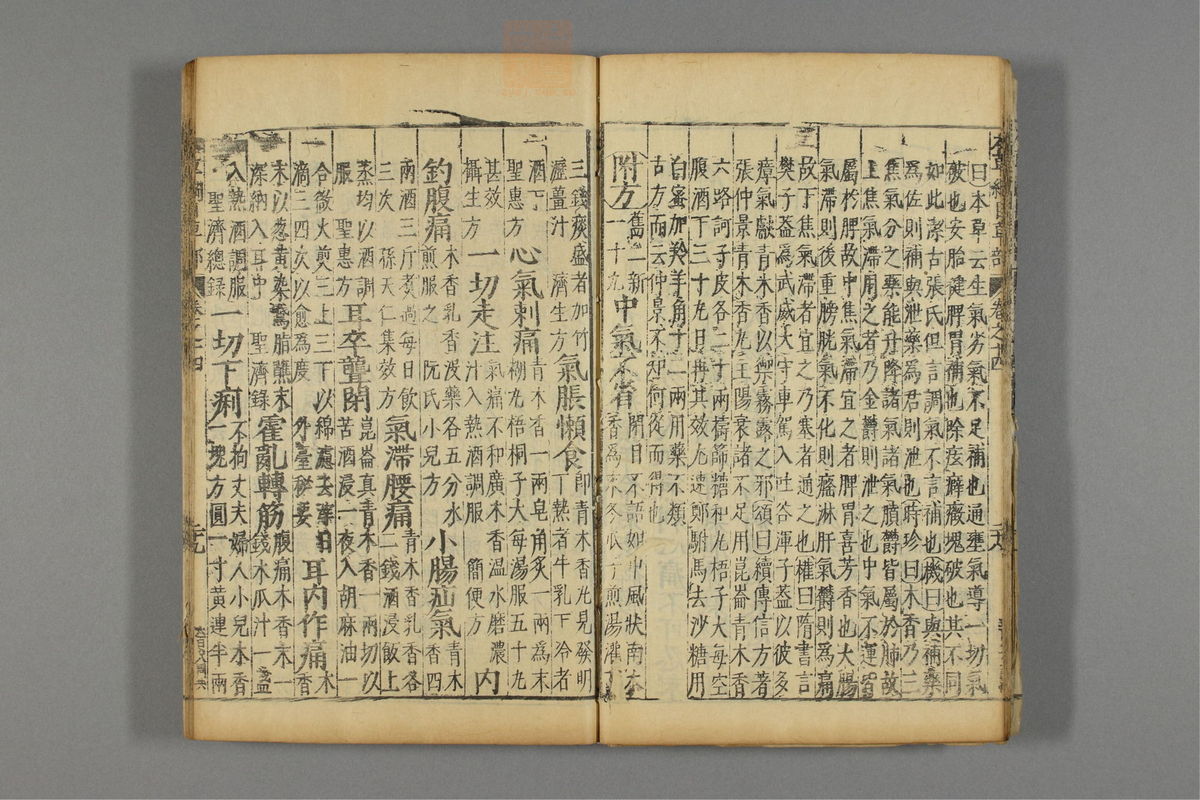 曰本草云生氣劣氣不足補也通壅氣導一切氣
破也安胎健脾胃補也除痃癖癥塊破也其不同
如此潔古張氏但言調氣不言補也機曰與補藥
爲佐則補與泄藥爲君則泄也時珍曰木香乃三
焦氣分之藥能升降諸氣諸氣膹鬱皆屬於肺故
上焦氣滯用之者乃金鬱則泄之也中氣不運皆
屬於脾故中焦氣滯宜之者脾胃喜芳香也大腸
氣滯則後重膀胱氣不化則癃淋肝氣鬱則爲痛
故下焦氣滯者宜之乃塞者通之也權曰隋書言
樊子蓋爲武威太守車駕入吐谷渾子蓋以彼多
瘴氣獻青木香以禦霧露之邪頌曰續傳信方著
張仲景青木香丸主陽衰諸不足用崑崙青木香
六路訶子皮各二十兩擣篩糖和丸梧子大每空
腹酒下三十九日再其效尤速鄭駙馬去沙糖用
白蜜加羚羊角十二兩用藥不類
古方而云仲景不知何從而得也
附方 舊二新一十九 中氣不省 閉目不語如中風狀南木香爲末冬瓜子煎湯灌下
三錢痰盛者加竹瀝薑汁 濟生方 氣脹懶食 即青木香丸見發明下熱者牛乳下冷者
酒下 聖惠方 心氣刺痛 青木香一兩皂角炙一兩爲末糊丸梧桐子大每湯服五十丸
甚效 攝生方 一切走注 氣痛不和廣木香溫水磨濃汁入熱酒調服 簡便方 內
釣腹痛 木香乳香沒藥各五分水煎服之 阮氏小兒方 小腸疝氣 青木香四
兩酒三斤煮過每日飲三次 孫天仁集效方 氣滯腰痛 青木香乳香各二錢酒浸飯上
蒸均以酒調服 聖惠方 耳卒聾閉 崑崙真青木香一兩切以苦酒浸一夜入胡麻油一
合微火煎三上三下以綿濾去滓日滴三四次以愈爲度 外臺秘要 耳內作痛 木香
末以葱黃染鵞脂蘸末深納入耳中 聖濟錄 霍亂轉筋 腹痛木香末一錢木瓜汁一盞
入熱酒調服 聖濟總錄 一切下痢 不拘丈夫婦人小兒木香一塊方圓一寸黃連半兩